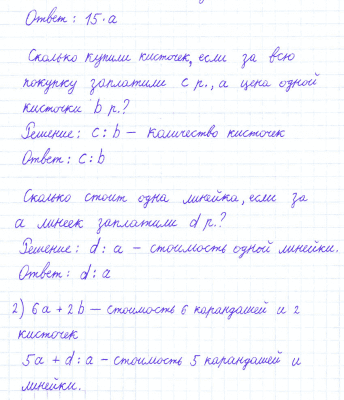 Ответ: 15·a
Сколько купили кисточек, если за всю
покупку заплатили c р., а цена одной
кисточки b р.?
Решение: c : b – количество кисточек
Ответ: c : b
Сколько стоит одна линейка, если за
a линеек заплатили d р.?
Решение: d : a – стоимость одной линейки.
Ответ: d : a
2) 6a + 2b – стоимость 6 карандашей и 2
кисточек
5a + d : a – стоимость 5 карандашей и
линейки.